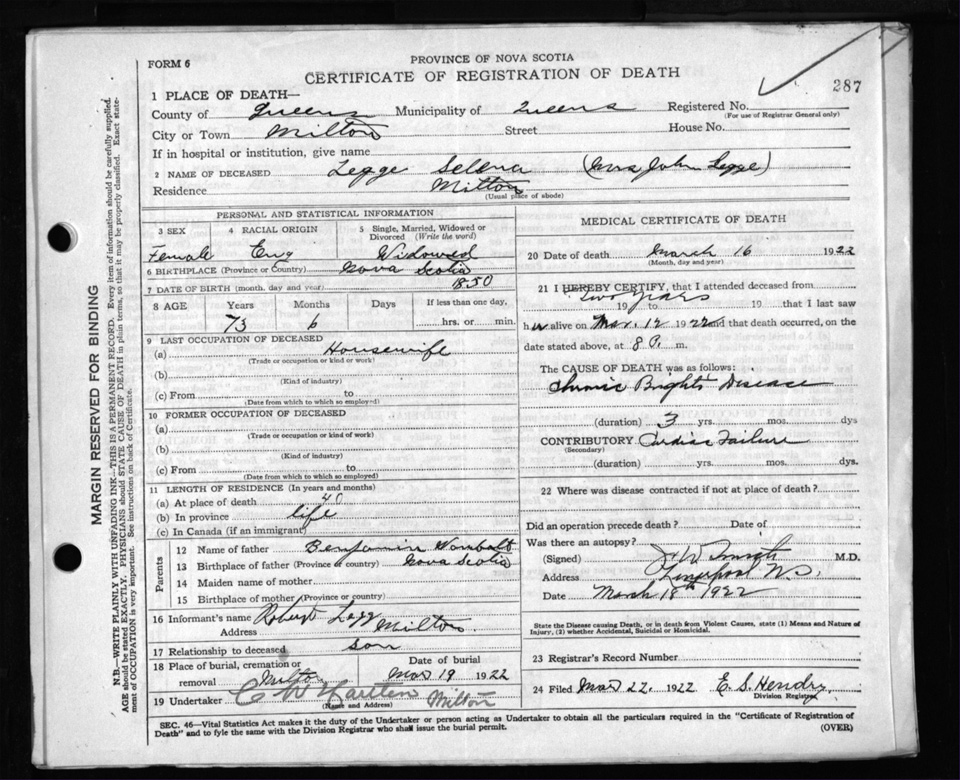 FORM 6
PROVINCE OF NOVA SCOTIA
CERTIFICATE OF REGISTRATION OF DEATH
287
1 PLACE OF DEATH—
County of Queens Municipality of Queens Registered No.
(For use of Registrar General only)
City or Town Milton Street House No.
If in hospital or institution, give name
2 NAME OF DECEASED Legge Selena (Mrs John Legge)
Residence Milton
(Usual place of abode)
PERSONAL AND STATISTICAL INFORMATION
3 SEX 4 RACIAL ORIGIN 5 Single, Married, Widowed or Divorced (Write the word)
Female Eng Widowed
6 BIRTHPLACE (Province or Country) Nova Scotia
7 DATE OF BIRTH (month, day and year) 1850
8 AGE Years Months Days If less than one day,
73 6 hrs. or min.
9 LAST OCCUPATION OF DECEASED
(a) Housewife
(Trade or occupation or kind of work)
(b)
(Kind of industry)
(c) From to
(Date from which to which so employed)
10 FORMER OCCUPATION OF DECEASED
(a)
(Trade or occupation or kind of work)
(b)
(Kind of industry)
(c) From to
(Date from which to which so employed)
11 LENGTH OF RESIDENCE (In years and months)
(a) At place of death 40
(b) In province life
(c) In Canada (if an immigrant)
Parents
12 Name of father Benjamin Wombolt
13 Birthplace of father (Province or country) Nova Scotia
14 Maiden name of mother
15 Birthplace of mother (Province or country)
16 Informant's name Robert Legg
Address Milton
17 Relationship to deceased son
18 Place of burial, cremation or removal Milton Date of burial Mar 19 1922
19 Undertaker C W Milton
(Name and Address)
MEDICAL CERTIFICATE OF DEATH
20 Date of death March 16 1922
(Month, day and year)
21 I HEREBY CERTIFY, that I attended deceased from
two years
19 to 19 that I last saw
her alive on Mar. 12 1922 and that death occurred, on the
date stated above, at 8 P. m.
The CAUSE OF DEATH was as follows:
Chronic Brights Disease
(duration) 3 yrs. mos. dys
CONTRIBUTORY Cardiac Failure
(Secondary)
(duration) yrs. mos. dys.
22 Where was disease contracted if not at place of death?
Did an operation precede death? Date of
Was there an autopsy?
(Signed) J W Smith M.D.
Address Liverpool N.S.
Date March 18th 1922
State the Disease causing Death, or in death from Violent Causes, state (1) Means and Nature of
Injury, (2) whether Accidental, Suicidal or Homicidal.
23 Registrar's Record Number
24 Filed Mar 22, 1922 E. S. Hendry
Division Registrar
SEC. 46—Vital Statistics Act makes it the duty of the Undertaker or person acting as Undertaker to obtain all the particulars required in the "Certificate of Registration of
Death" and to fyle the same with the Division Registrar who shall issue the burial permit.
(OVER)
MARGIN RESERVED FOR BINDING
N.B.—WRITE PLAINLY WITH UNFADING INK—THIS IS A PERMANENT RECORD. Every item of information should be carefully supplied.
AGE should be stated EXACTLY. PHYSICIANS should STATE CAUSE OF DEATH in plain terms, so that it may be properly classified. Exact statement
of OCCUPATION is very important. See instructions on back of Certificate.